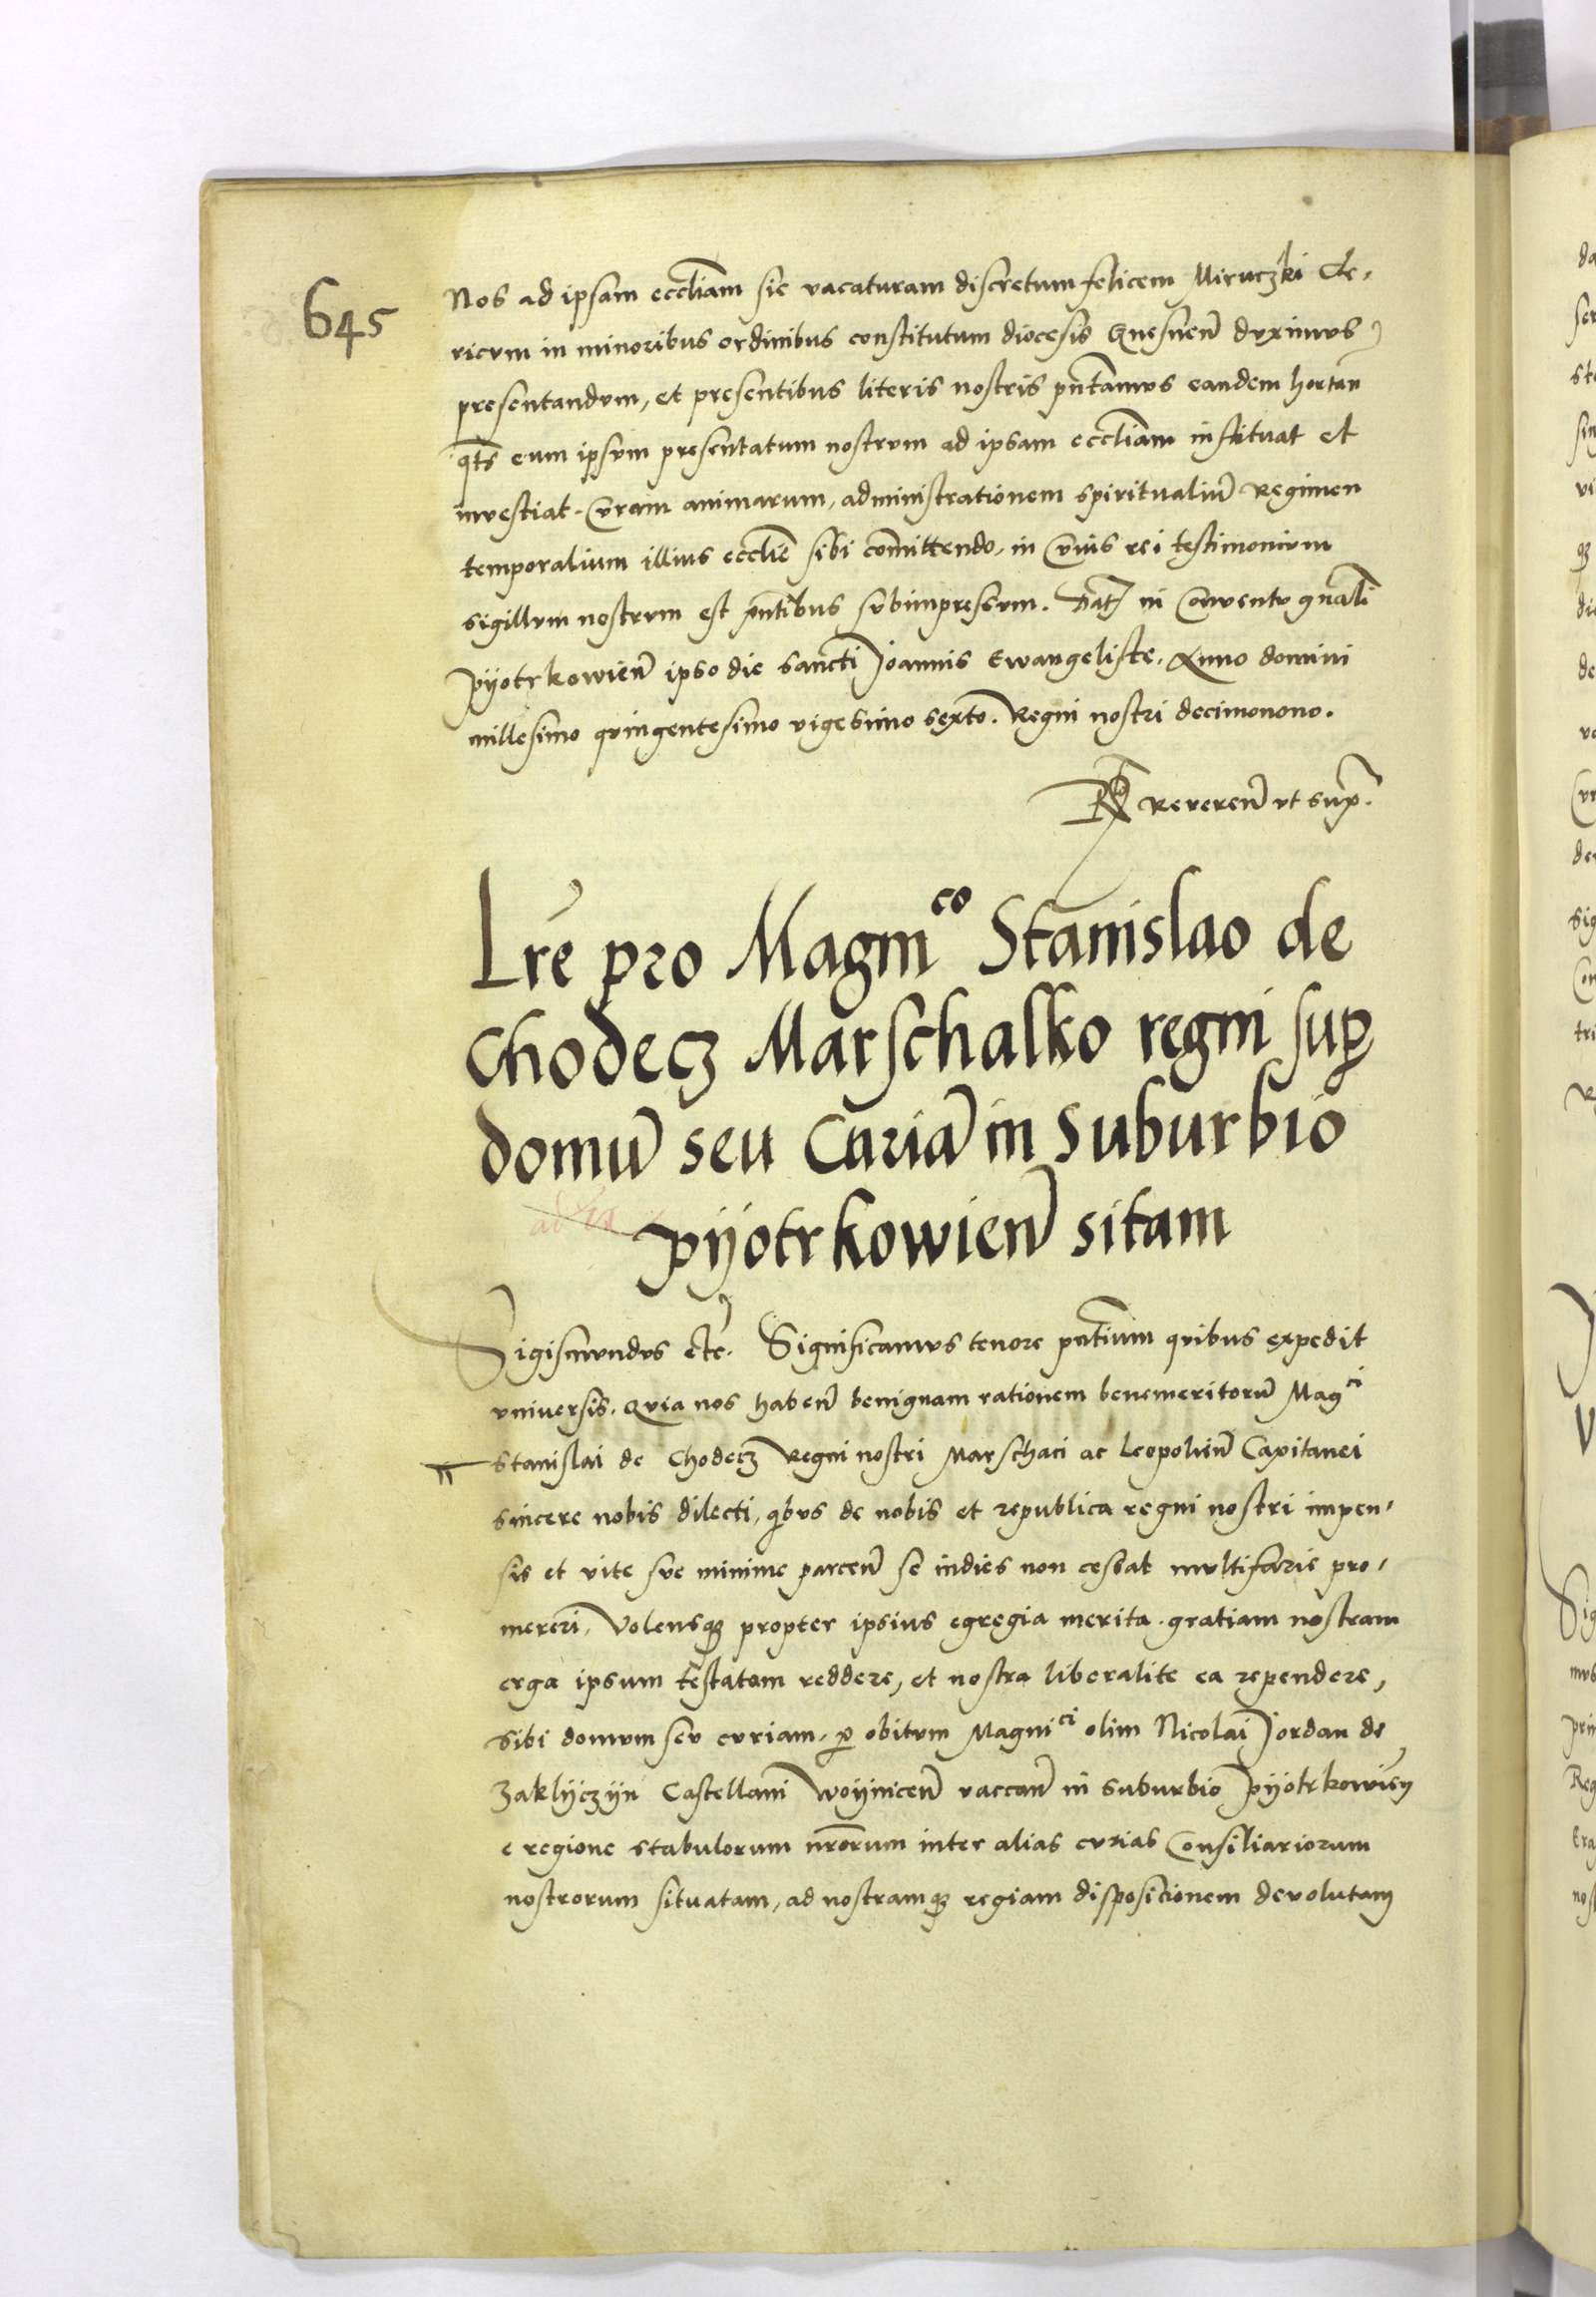 645
Nos ad ipsam eccliam sic vacaturam discretum felicem Miruczki Cle-
ricvm in minoribus ordinibus constitutum diocesis Gnesnen dvximvs
presentandvm, et presentibus literis nostris pntamvs eandem hortan
qts eum ipsvm presentatum nostrvm ad ipsam eccliam instituat et
investiat. Cvram animarum, administrationem spiritualium Regimen
temporalium illivs ecclie sibi comittendo, in Cvius rei testimonivm
sigillvm nostrvm est pntibus svbimpressvm. Dat in Conventv gnali
Pyotrkowien ipso die sancti Joannis Ewangeliste. Anno domini
millesimo qvingentesimo vigesimo sexto. Regni nostri decimonono.
Reveren vt sup.
Lre pro Magnico Stanislao de
Chodecz Marschalko regni sup
domu seu Curia in suburbio
pyotrkowien sitam
Sigismvndvs etc. Significamvs tenore pntium qvibus expedit
vniversis. Qvia nos haben benignam rationem benemeritoru Magci
Stanislai de Chodecz Regni nostri Marschaci ac Leopolien Capitanei
sincere nobis dilecti, qbvs de nobis et republica regni nostri impen-
sis et vite sve minime parcen se indies non cessat mvltifarie pro-
mereri, Volensq propter ipsius egregia merita gratiam nostram
erga ipsum testatam reddere, et nostra liberalite ea rependere,
sibi domvm sev cvriam, p obitvm Magnici olim Nicolai Jordan de
Zaklyczyn Castellani Woynicen vaccan in suburbio Pyotrkowien
e regione stabulorum nrorum inter alias cvrias Consiliariorum
nostrorum sitvatam, ad nostramq regiam dispositionem devolutam